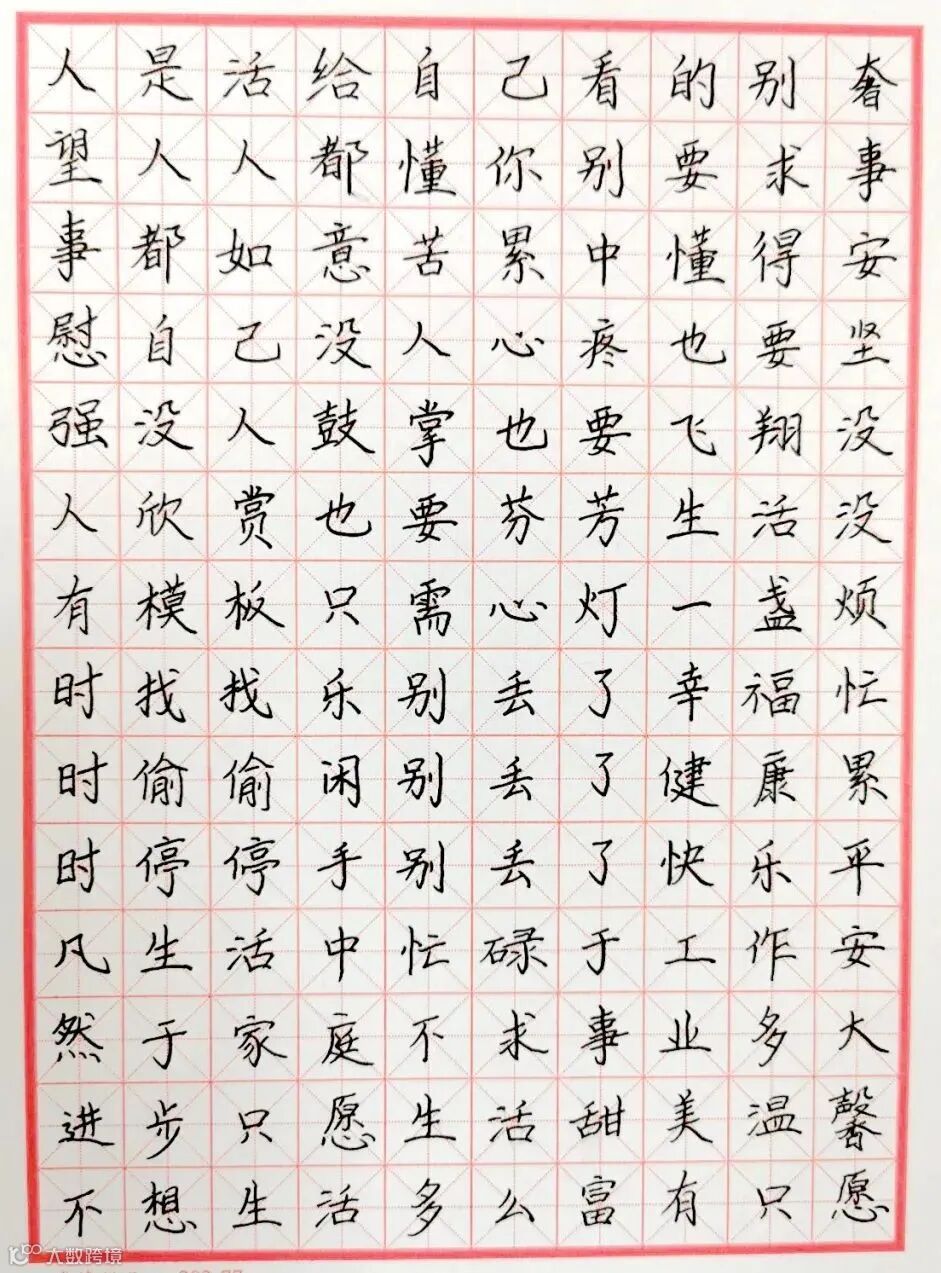 人是活给自己看的别奢
望人人都懂你别要求事
事都如意苦累中懂得安
慰自己没人心疼也要坚
强没人鼓掌也要飞翔没
人欣赏也要芬芳生活没
有模板只需心灯一盏烦
时找找乐别丢了幸福忙
时偷偷闲别丢了健康累
时停停手别丢了快乐平
凡生活中忙碌于工作安
然于家庭不求事业多大
进步只愿生活甜美温馨
不想生活多么富有只愿
大数跨境